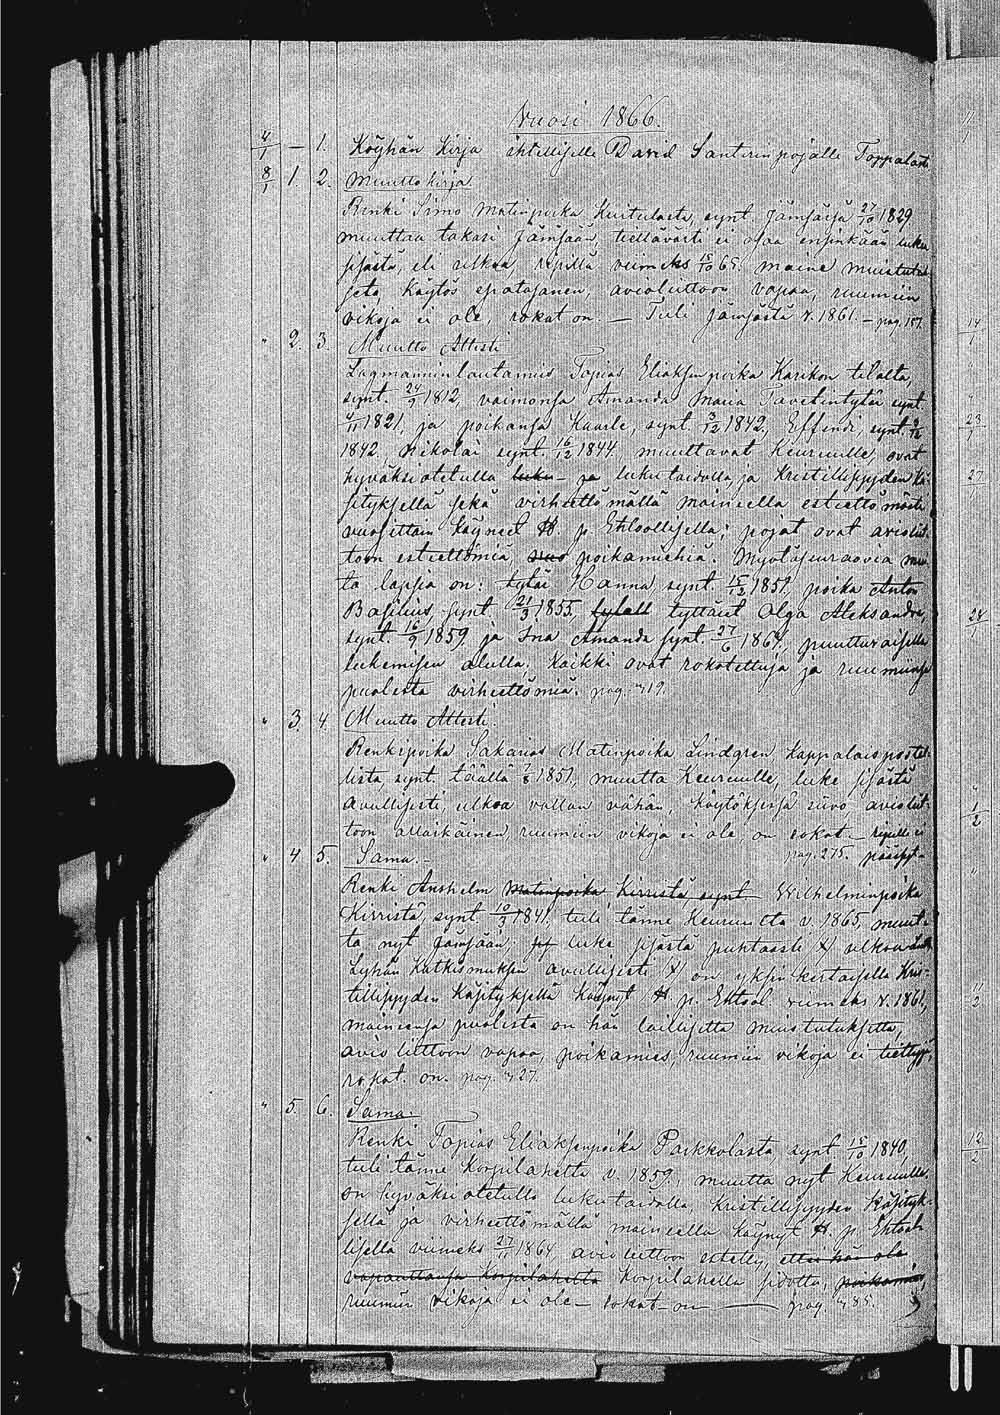 Vuosi 1866.
4/1 — 1. Köyhän Kirja ihtelliselle David Santerin pojalle Toppalasta
8/1 1. 2. Muutto kirja.
Renki Simo Matinpoika Huitulasta, synt. Jämsässä 27/10 1829
muuttaa takasi Jämsään, tiettävästi ei osaa ensinkään lukea
sisästä, eli ulkoa, ripillä viimeks 15/10 65. maine muistutuk
seta, käytös epatasanen, avioliittoon vapaa, ruumiin
vikoja ei ole, rokat on. — Tuli Jämsästä v. 1861. — pag. 157.
" 2. 3. Muutto Attesti
Lagmannin lautamies Topias Eliaksenpoika Karikon tilalta,
synt. 24/9 1812, vaimonsa Amanda Maria Tavetintytär synt.
4/11 1821, ja poikansa Kaarle, synt. 3/12 1842, Effendi, synt. 3/12
1842, Nikolai synt. 16/12 1844, muuttavat Keuruulle, ovat
hyväksi otetulla luku- ja lukutaidolla ja Kristillisyyden Kä-
sityksellä sekä virheettömällä maineella esteettömästi
vuosittain käyneet H. p. Ehtoollisella; pojat ovat avioliit-
toon esteettömiä, poikamiehiä. Myötäseuraavia muu-
ta lapsia on: tytär Hanna, synt. 15/12 1851, poika Anton
Basilius, synt 21/3 1855, tytäret tyttäret Olga Aleksandra,
synt. 16/9 1859 ja Ina Amanda synt. 27/6 1864, puutturaisella
lukemisen alulla. Kaikki ovat rokotettuja ja ruumiinsa
puolesta virheettömiä. pag. 419.
" 3. 4. Muutto Attesti.
Renkipoika Sakarias Matinpoika Lindgren, kappalaispostel-
lista, synt. täällä 7/8 1851, muutta Keuruulle, luke sisästä
avullisesti, ulkoa vallan vähän, käytöksessä siivo, avioliit-
toon alaikäinen, ruumiin vikoja ei ole, on rokat. — ripille ei
pag. 275. päässyt —
" 4 5. Sama. —
Renki Anshelm Matinpoika Kirristä synt Wilhelminpoika
Kirristä, synt 10/3 1841, tuli tänne Keuruulta v. 1865, muut-
ta nyt Jämsään, luke sisästä puhtaasti ulkoa
Lyhän Katkismuksen avullisesti on yksinkertasella Kris-
tillisyyden Käsityksellä käynyt H. p. Ehtool viimeks v. 1861,
maineensa puolesta on hän laillisetta muistutuksetta,
avioliittoon vapaa, poikamies, ruumiin vikoja ei tiettysti,
rokat. on. pag. 427.
" 5. 6. Sama.
Renki Topias Eliaksenpoika Parkkolasta, synt 15/10 1840,
tuli tänne Korpilahelta v. 1859, muutta nyt Keuruulle,
on hyväksi otetulla lukutaidolla, Kristillisyyden Käsityk-
sellä ja virheettömällä maineella käynyt H. p. Ehtool-
lisella viimeks 27/11 1864, avioliittoon esteelly, ettei hän ole
vapauttansa Korpilahelta Korpilahella sidottu, poikamies,
ruumiin vikoja ei ole — rokat — on — pag 485.